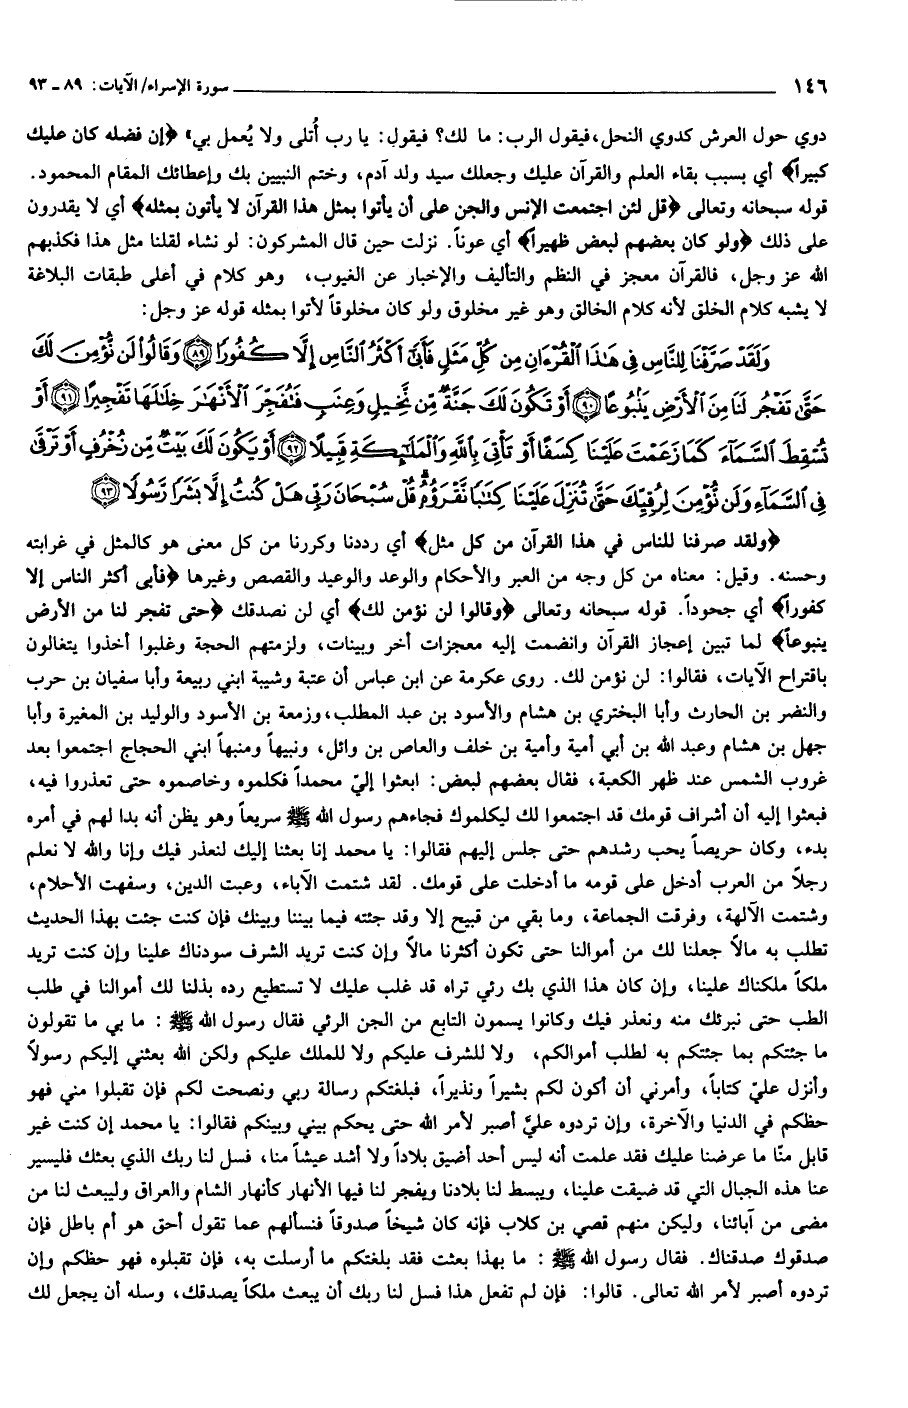 ١٤٦ سورة الإسراء/ الآيات: ٨٩ ـ ٩٣
دوي حول العرش كدوي النحل، فيقول الرب: ما لك؟ فيقول: يا رب أُتلى ولا يُعمل بي» ﴿إن فضله كان عليك
كبيراً﴾ أي بسبب بقاء العلم والقرآن عليك وجعلك سيد ولد آدم، وختم النبيين بك وإعطائك المقام المحمود.
قوله سبحانه وتعالى ﴿قل لئن اجتمعت الإنس والجن على أن يأتوا بمثل هذا القرآن لا يأتون بمثله﴾ أي لا يقدرون
على ذلك ﴿ولو كان بعضهم لبعض ظهيراً﴾ أي عوناً. نزلت حين قال المشركون: لو نشاء لقلنا مثل هذا فكذبهم
الله عز وجل، فالقرآن معجز في النظم والتأليف والإخبار عن الغيوب، وهو كلام في أعلى طبقات البلاغة
لا يشبه كلام الخلق لأنه كلام الخالق وهو غير مخلوق ولو كان مخلوقاً لأتوا بمثله قوله عز وجل:
وَلَقَدْ صَرَّفْنَا لِلنَّاسِ فِي هَٰذَا الْقُرْءَانِ مِن كُلِّ مَثَلٍ فَأَبَىٰٓ أَكْثَرُ النَّاسِ إِلَّا كُفُورًا ٨٩ وَقَالُوا۟ لَن نُّؤْمِنَ لَكَ
حَتَّىٰ تَفْجُرَ لَنَا مِنَ ٱلْأَرْضِ يَنۢبُوعًا ٩٠ أَوْ تَكُونَ لَكَ جَنَّةٌ مِّن نَّخِيلٍ وَعِنَبٍ فَتُفَجِّرَ ٱلْأَنْهَٰرَ خِلَٰلَهَا تَفْجِيرًا ٩١ أَوْ
تُسْقِطَ ٱلسَّمَآءَ كَمَا زَعَمْتَ عَلَيْنَا كِسَفًا أَوْ تَأْتِيَ بِٱللَّهِ وَٱلْمَلَٰٓئِكَةِ قَبِيلًا ٩٢ أَوْ يَكُونَ لَكَ بَيْتٌ مِّن زُخْرُفٍ أَوْ تَرْقَىٰ
فِي ٱلسَّمَآءِ وَلَن نُّؤْمِنَ لِرُقِيِّكَ حَتَّىٰ تُنَزِّلَ عَلَيْنَا كِتَٰبًا نَّقْرَؤُهُۥ قُلْ سُبْحَانَ رَبِّي هَلْ كُنتُ إِلَّا بَشَرًا رَّسُولًا ٩٣
﴿ولقد صرفنا للناس في هذا القرآن من كل مثل﴾ أي رددنا وكررنا من كل معنى هو كالمثل في غرابته
وحسنه. وقيل: معناه من كل وجه من العبر والأحكام والوعد والوعيد والقصص وغيرها ﴿فأبى أكثر الناس إلا
كفوراً﴾ أي جحوداً. قوله سبحانه وتعالى ﴿وقالوا لن نؤمن لك﴾ أي لن نصدقك ﴿حتى تفجر لنا من الأرض
ينبوعاً﴾ لما تبين إعجاز القرآن وانضمت إليه معجزات أخر وبينات، ولزمتهم الحجة وغلبوا أخذوا يتغالون
باقتراح الآيات، فقالوا: لن نؤمن لك. روى عكرمة عن ابن عباس أن عتبة وشيبة ابني ربيعة وأبا سفيان بن حرب
والنضر بن الحارث وأبا البختري بن هشام والأسود بن عبد المطلب، وزمعة بن الأسود والوليد بن المغيرة وأبا
جهل بن هشام وعبد الله بن أبي أمية وأمية بن خلف والعاص بن وائل، ونبيهاً ومنبهاً ابني الحجاج اجتمعوا بعد
غروب الشمس عند ظهر الكعبة، فقال بعضهم لبعض: ابعثوا إليّ محمداً فكلموه وخاصموه حتى تعذروا فيه،
فبعثوا إليه أن أشراف قومك قد اجتمعوا لك ليكلموك فجاءهم رسول الله ﷺ سريعاً وهو يظن أنه بدا لهم في أمره
بدء، وكان حريصاً يحب رشدهم حتى جلس إليهم فقالوا: يا محمد إنا بعثنا إليك لنعذر فيك وإنا والله لا نعلم
رجلاً من العرب أدخل على قومه ما أدخلت على قومك. لقد شتمت الآباء، وعبت الدين، وسفهت الأحلام،
وشتمت الآلهة، وفرقت الجماعة، وما بقي من قبيح إلا وقد جئته فيما بيننا وبينك فإن كنت جئت بهذا الحديث
تطلب به مالاً جعلنا لك من أموالنا حتى تكون أكثرنا مالاً وإن كنت تريد الشرف سودناك علينا وإن كنت تريد
ملكاً ملكناك علينا، وإن كان هذا الذي بك رئي تراه قد غلب عليك لا تستطيع رده بذلنا لك أموالنا في طلب
الطب حتى نبرئك منه ونعذر فيك وكانوا يسمون التابع من الجن الرئي فقال رسول الله ﷺ : ما بي ما تقولون
ما جئتكم بما جئتكم به لطلب أموالكم، ولا للشرف عليكم ولا للملك عليكم ولكن الله بعثني إليكم رسولاً
وأنزل عليّ كتاباً، وأمرني أن أكون لكم بشيراً ونذيراً، فبلغتكم رسالة ربي ونصحت لكم فإن تقبلوا مني فهو
حظكم في الدنيا والآخرة، وإن تردوه عليَّ أصبر لأمر الله حتى يحكم بيني وبينكم فقالوا: يا محمد إن كنت غير
قابل منّا ما عرضنا عليك فقد علمت أنه ليس أحد أضيق بلاداً ولا أشد عيشاً منا، فسل لنا ربك الذي بعثك فليسير
عنا هذه الجبال التي قد ضيقت علينا، ويبسط لنا بلادنا ويفجر لنا فيها الأنهار كأنهار الشام والعراق وليبعث لنا من
مضى من آبائنا، وليكن منهم قصي بن كلاب فإنه كان شيخاً صدوقاً فنسألهم عما تقول أحق هو أم باطل فإن
صدقوك صدقناك. فقال رسول الله ﷺ : ما بهذا بعثت فقد بلغتكم ما أرسلت به، فإن تقبلوه فهو حظكم وإن
تردوه أصبر لأمر الله تعالى. قالوا: فإن لم تفعل هذا فسل لنا ربك أن يبعث ملكاً يصدقك، وسله أن يجعل لك